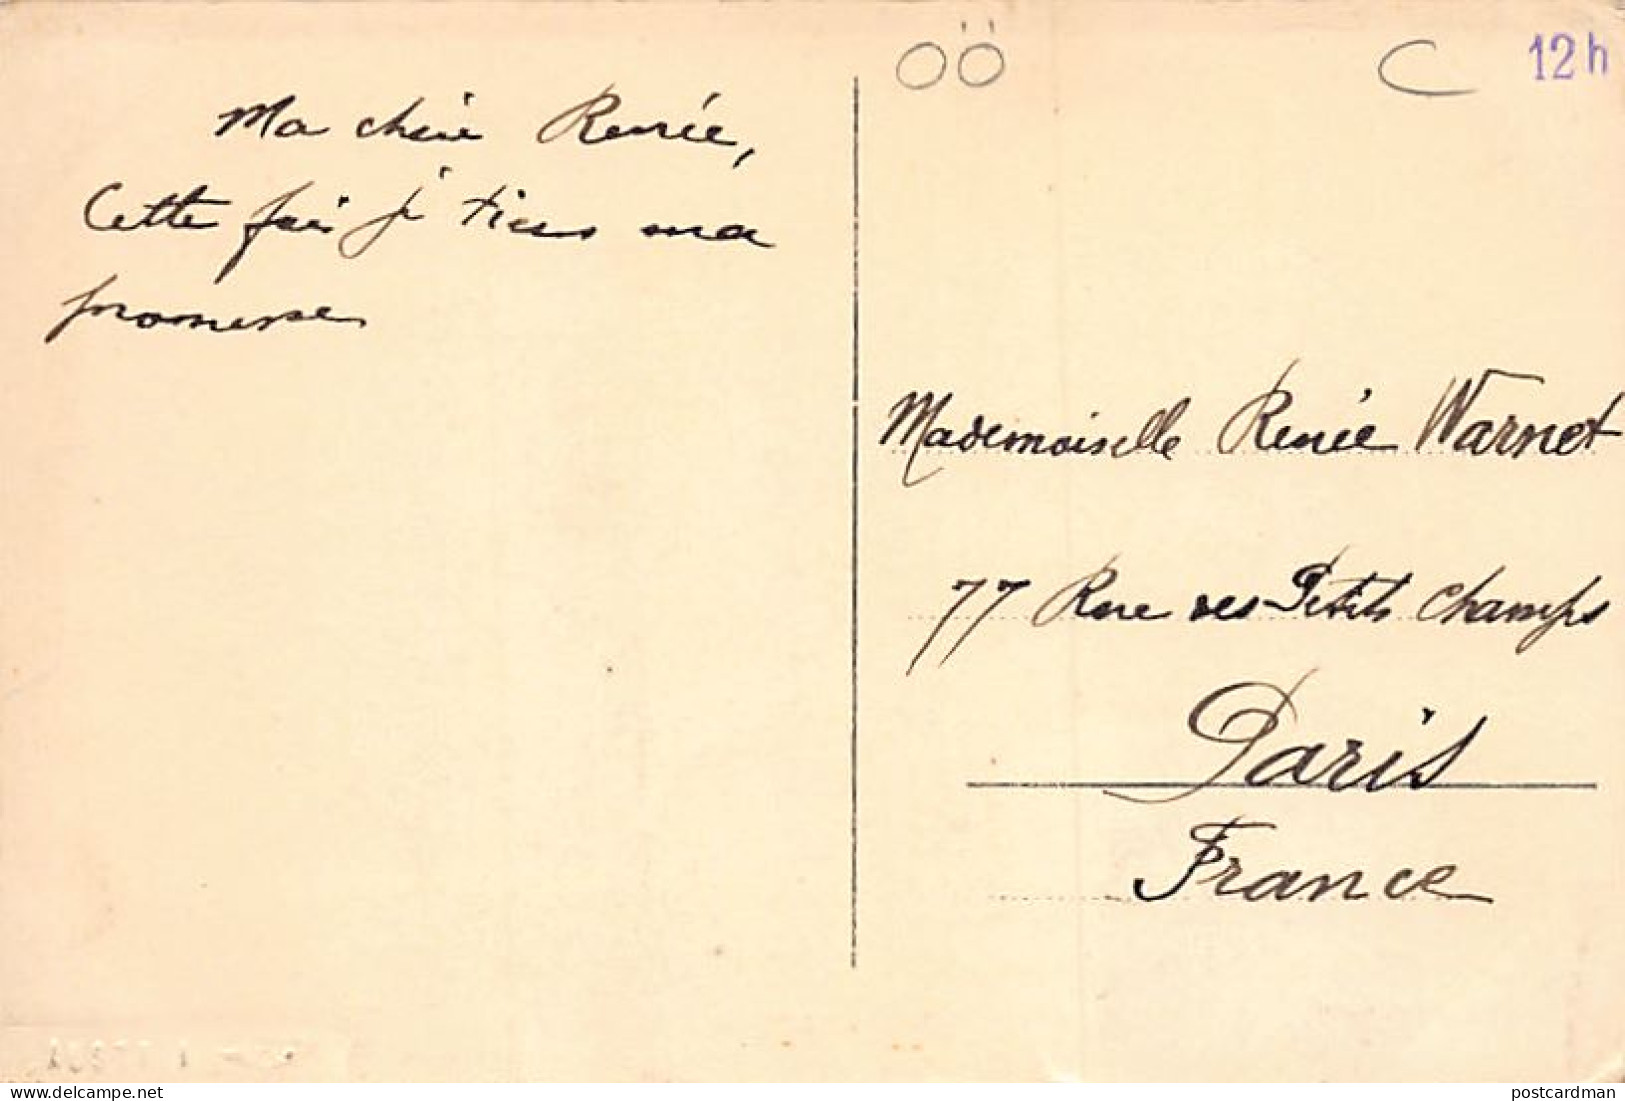 Ma chère Renée,
Cette fois je tiens ma
promesse
OÖ
C
12h
Mademoiselle Renée Warnet
77 Rue des Petits Champs
Paris
France
postcardman